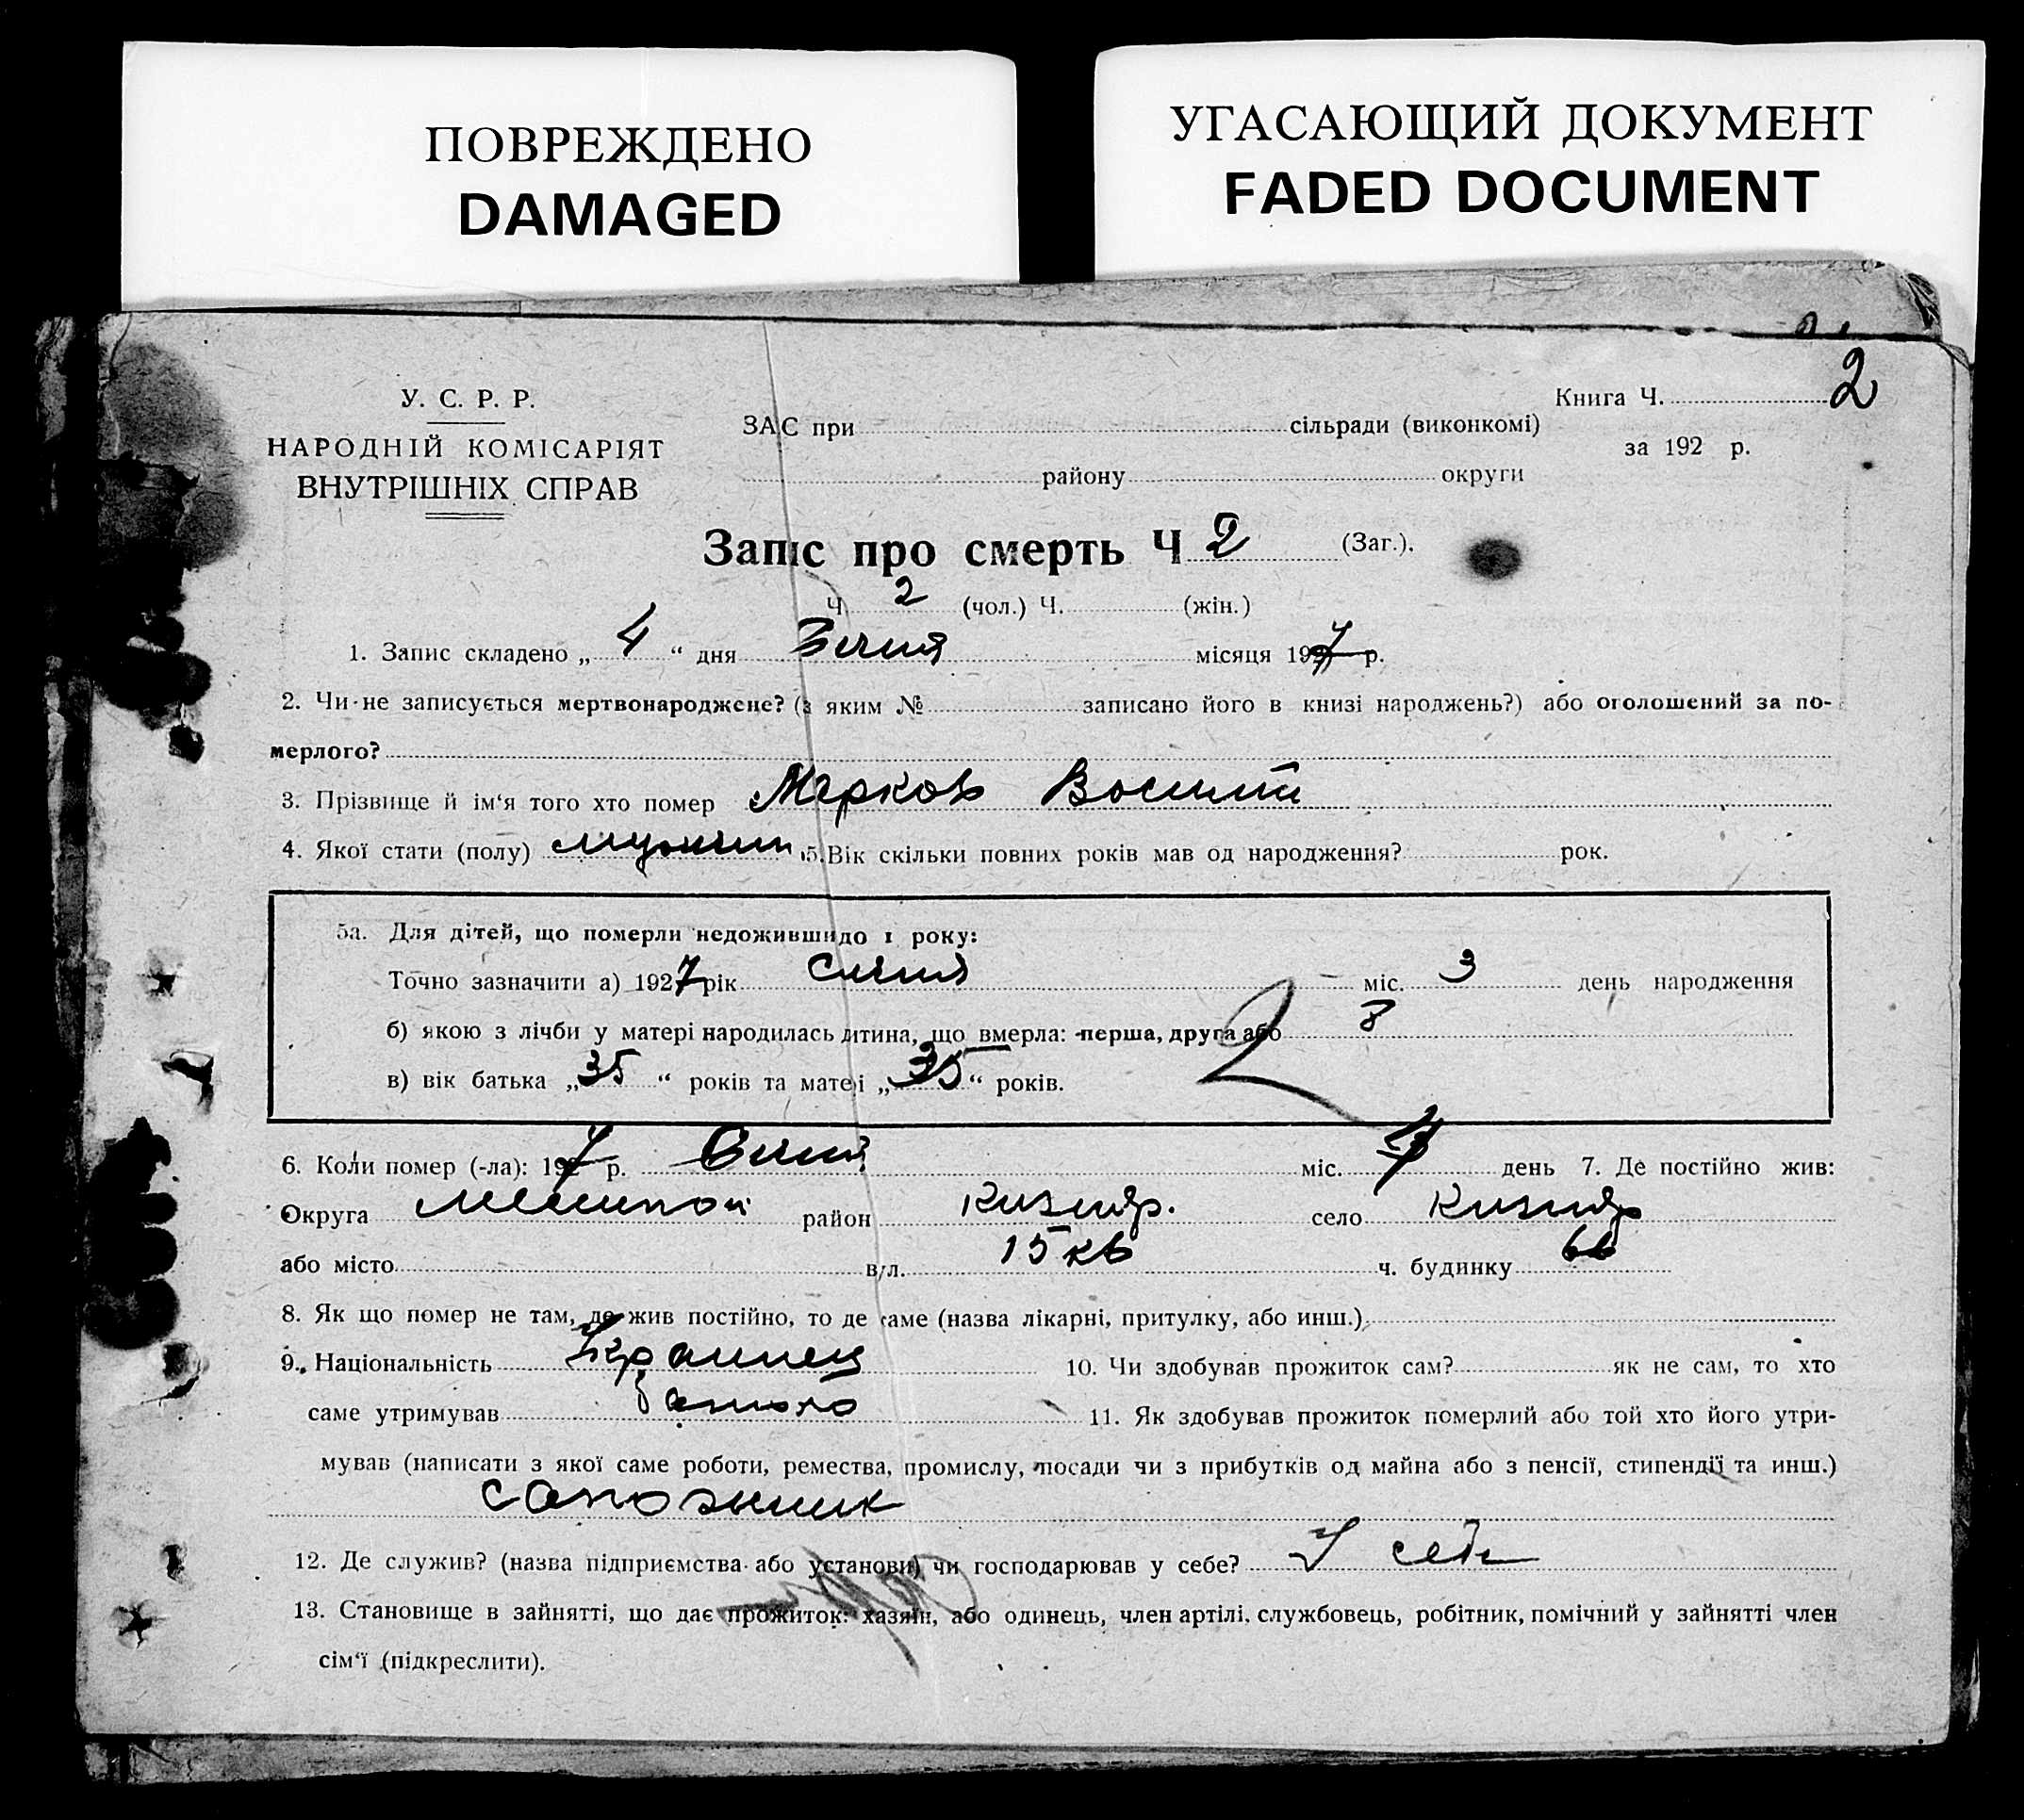 ПОВРЕЖДЕНО
DAMAGED
УГАСАЮЩИЙ ДОКУМЕНТ
FADED DOCUMENT
У. С. Р. Р.
НАРОДНІЙ КОМІСАРІЯТ
ВНУТРІШНІХ СПРАВ
ЗАС при сільради (виконкомі)
району округи
Книга Ч. 2
за 192 р.
Запис про смерть Ч 2 (Заг.).
Ч 2 (чол.) Ч. (жін.)
1. Запис складено „ 4 “ дня місяця 1927 р.
2. Чи не записується мертвонароджене? (з яким № записано його в книзі народжень?) або оголошений за по-
мерлого?
3. Прізвище й ім‘я того хто помер Марков
4. Якої стати (полу) 5. Вік скільки повних років мав од народження? рок.
5а. Для дітей, що померли недожившидо 1 року:
Точно зазначити а) 1927 рік міс. 3 день народження
б) якою з лічби у матері народилась дитина, що вмерла: перша, друга або 8
2
в) вік батька „ 35 “ років та матері „ 35 “ років.
6. Коли помер (-ла): 1927 р. міс. день 7. Де постійно жив:
Округа район село
або місто вул. 15 кв ч. будинку 66
8. Як що помер не там, де жив постійно, то де саме (назва лікарні, притулку, або инш.)
9. Національність Украинец 10. Чи здобував прожиток сам? як не сам, то хто
саме утримував 11. Як здобував прожиток померлий або той хто його утри-
мував (написати з якої саме роботи, ремества, промислу, посади чи з прибутків од майна або з пенсії, стипендії та инш.)
сапожник
12. Де служив? (назва підприємства або установи) чи господарював у себе? У себе
13. Становище в зайнятті, що дає прожиток: хазяїн, або одинець, член артілі, службовець, робітник, помічний у зайнятті член
сім‘ї (підкреслити).